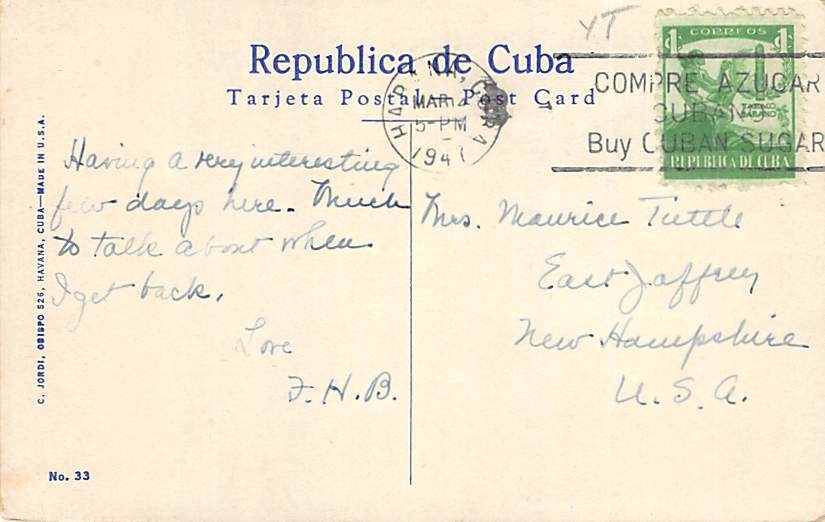 YT
Republica de Cuba
Tarjeta Postal — Post Card
CORREOS
1 1
TABACO HABANO
REPUBLICA DE CUBA
COMPRE AZUCAR
CUBANO
Buy CUBAN SUGAR
HABANA, CUBA
MAR
5-PM
1941
Having a very interesting
few days here. Much
to talk about when
I get back.
Love
F. H. B.
Mrs. Maurice Tuttle
East Jaffrey
New Hampshire
U. S. A.
C. JORDI, OBISPO 526, HAVANA, CUBA—MADE IN U.S.A.
No. 33